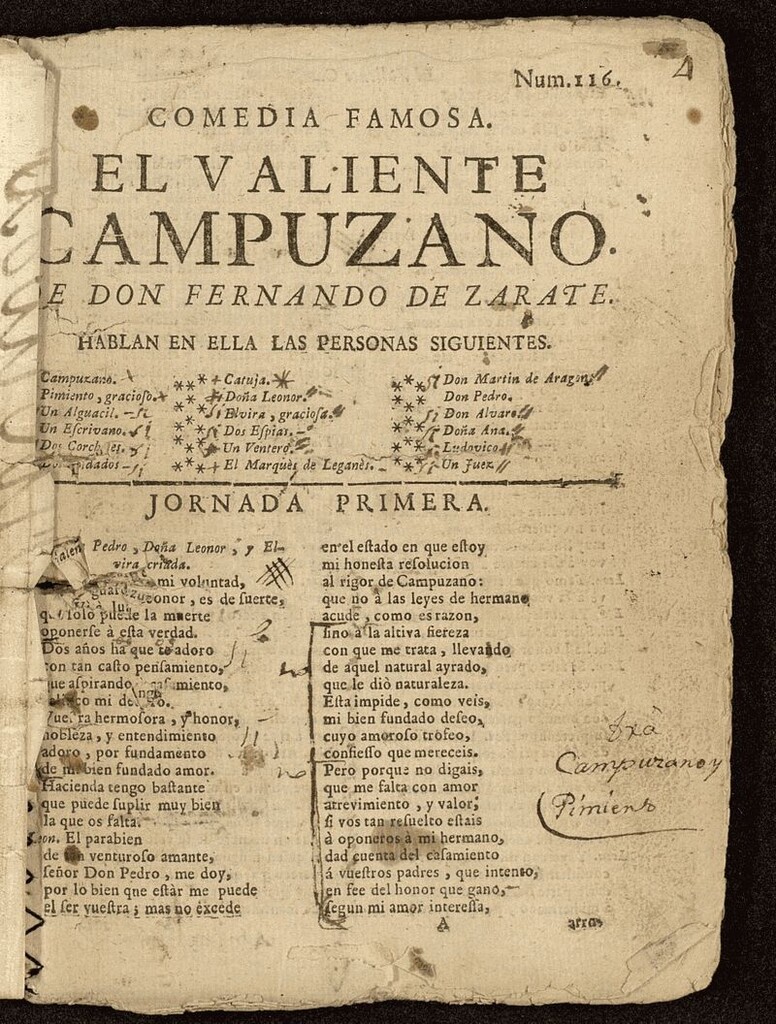 Num. 116.
4
COMEDIA FAMOSA.
EL VALIENTE
CAMPUZANO.
E DON FERNANDO DE ZARATE.
HABLAN EN ELLA LAS PERSONAS SIGUIENTES.
Campuzano.
Pimiento, gracioso.
Un Alguacil.
Un Eſcrivano.
Dos Corch
dados
Catuja.
Doña Leonor.
Elvira, gracioſa.
Dos Eſpias.
Un Ventero.
El Marquès de Leganès.
Don Martin de Aragon.
Don Pedro.
Don Alvaro.
Doña Ana.
Ludovico.
Un Juez.
JORNADA PRIMERA.
Salen Pedro, Doña Leonor, y El-
vira criada.
mi voluntad,
onor, es de ſuerte,
ſolo puede la muerte
oponerſe à eſta verdad.
Dos años ha que te adoro
con tan caſto penſamiento,
que aſpirando miento,
mi
hermoſura, y honor,
nobleza, y entendimiento
adoro, por fundamento
de mi bien fundado amor.
Hacienda tengo baſtante
que puede ſuplir muy bien
la que os falta.
eon. El parabien
de tan venturoſo amante,
ſeñor Don Pedro, me doy,
por lo bien que eſtàr me puede
el ſer vueſtra; mas no excede
en el eſtado en que eſtoy
mi honeſta reſolucion
al rigor de Campuzano:
que no à las leyes de hermano
acude, como es razon,
ſino à la altiva fiereza
con que me trata, llevando
de aquel natural ayrado,
que le diò naturaleza.
Eſta impide, como veis,
mi bien fundado deſeo,
cuyo amoroſo trofeo,
confieſſo que mereceis.
Pero porque no digais,
que me falta con amor
atrevimiento, y valor;
ſi vos tan reſuelto eſtais
à oponeros à mi hermano,
dad cuenta del caſamiento
á vueſtros padres, que intento,
en fee del honor que gano,
ſegun mi amor intereſſa,
A
Campuzano y
Pimiento